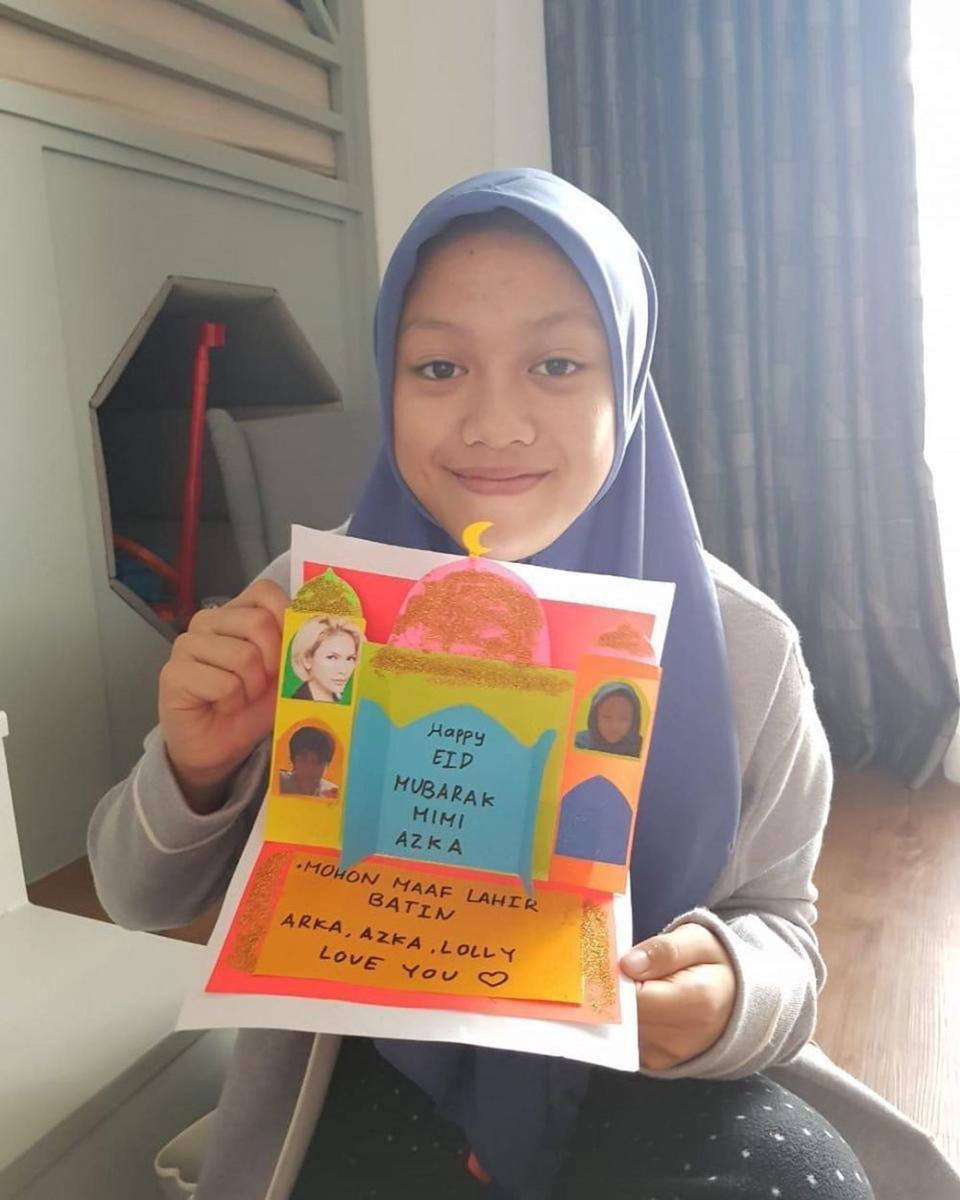 Happy
EID
MUBARAK
MIMI
AZKA
.MOHON MAAF LAHIR
BATIN
ARKA, AZKA, LOLLY
LOVE YOU ♡